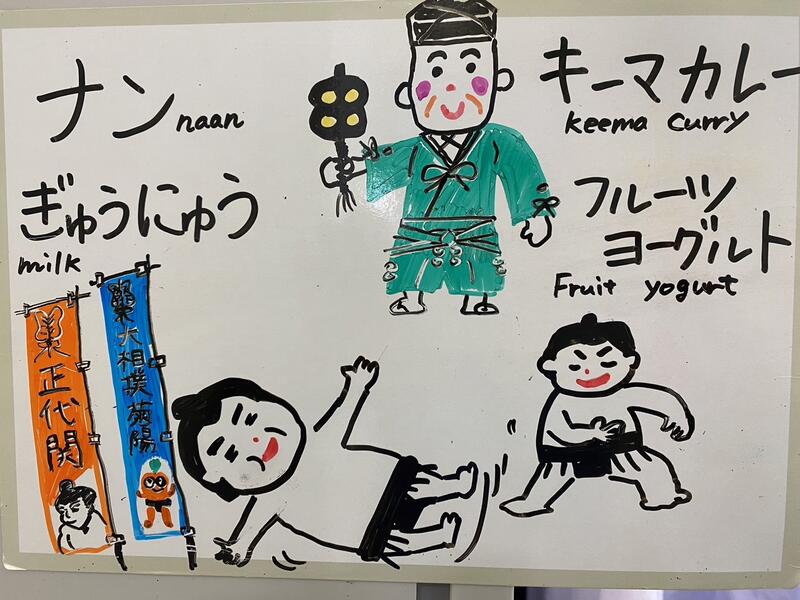 ナン
naan
キーマカレー
keema curry
ぎゅうにゅう
milk
フルーツ
ヨーグルト
Fruit yogurt
正代関
大相撲菊陽